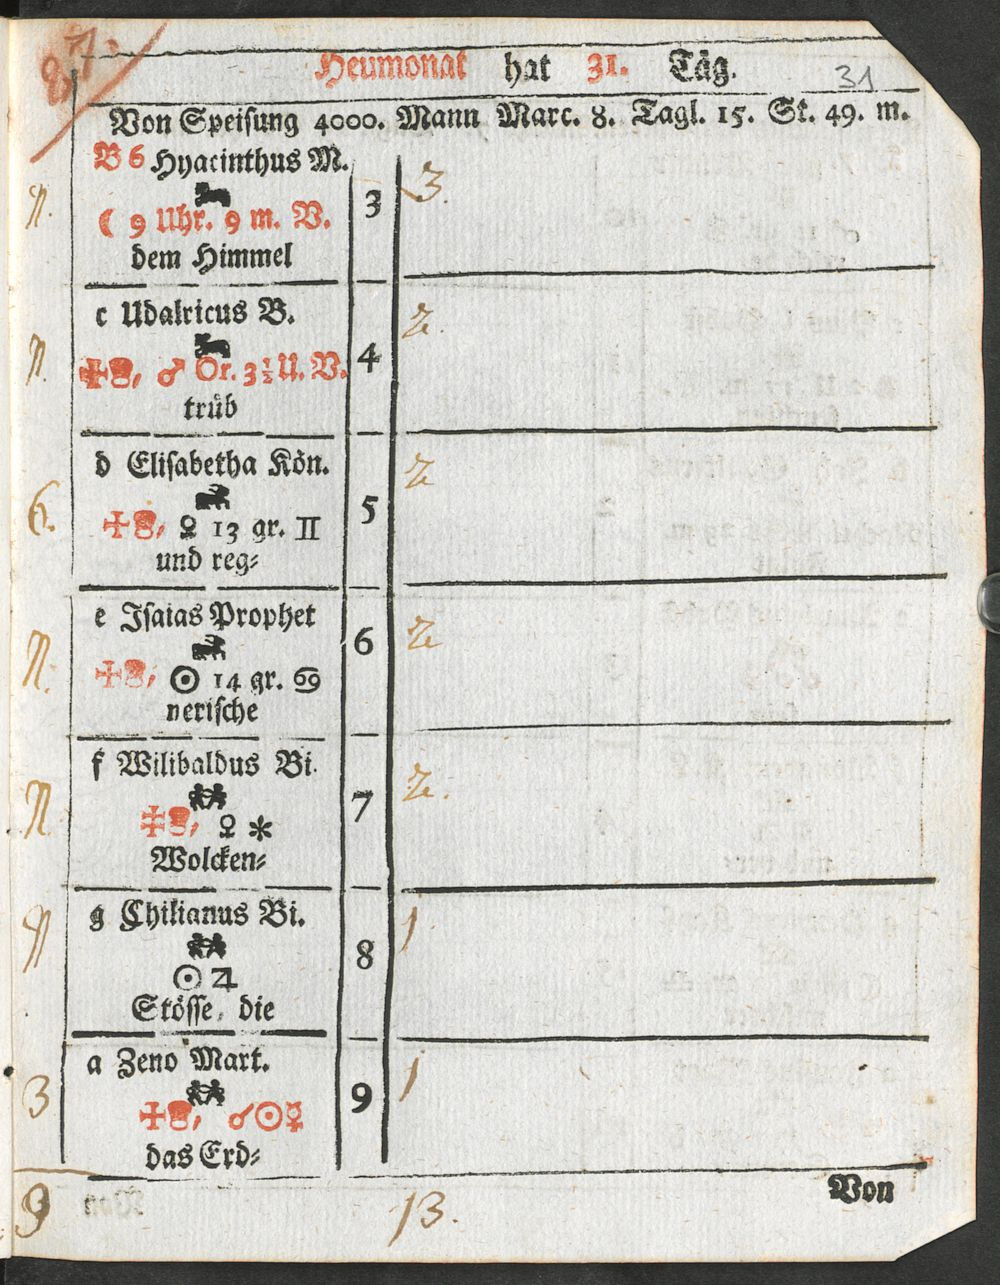 87.
Heumonat hat 31. Täg.
31
Von Speisung 4000. Mann Marc. 8. Tagl. 15. St. 49. m.
B 6 Hyacinthus M.
☾ 9 Uhr. 9 m. V.
dem Himmel
3
3.
c Udalricus B.
♂ Or. 3½ U. V.
trüb
4
2.
d Elisabetha Kön.
♀ 13 gr. II
und reg=
6.
5
2
e Isaias Prophet
☉ 14 gr. ♋
nerische
6
2
f Wilibaldus Bi.
♀ ✻
Wolcken=
7
2.
g Chilianus Bi.
☉ ♃
Stösse, die
8
1
a Zeno Mart.
☌☉☿
das Erd=
3
9
1
Von
9
13.